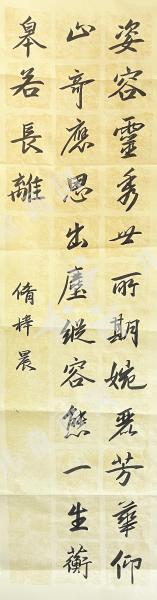 姿容靈秀世所期婉麗芳華仰
山奇應思出塵縱容態一生蘅
皋若長離
脩梓晨